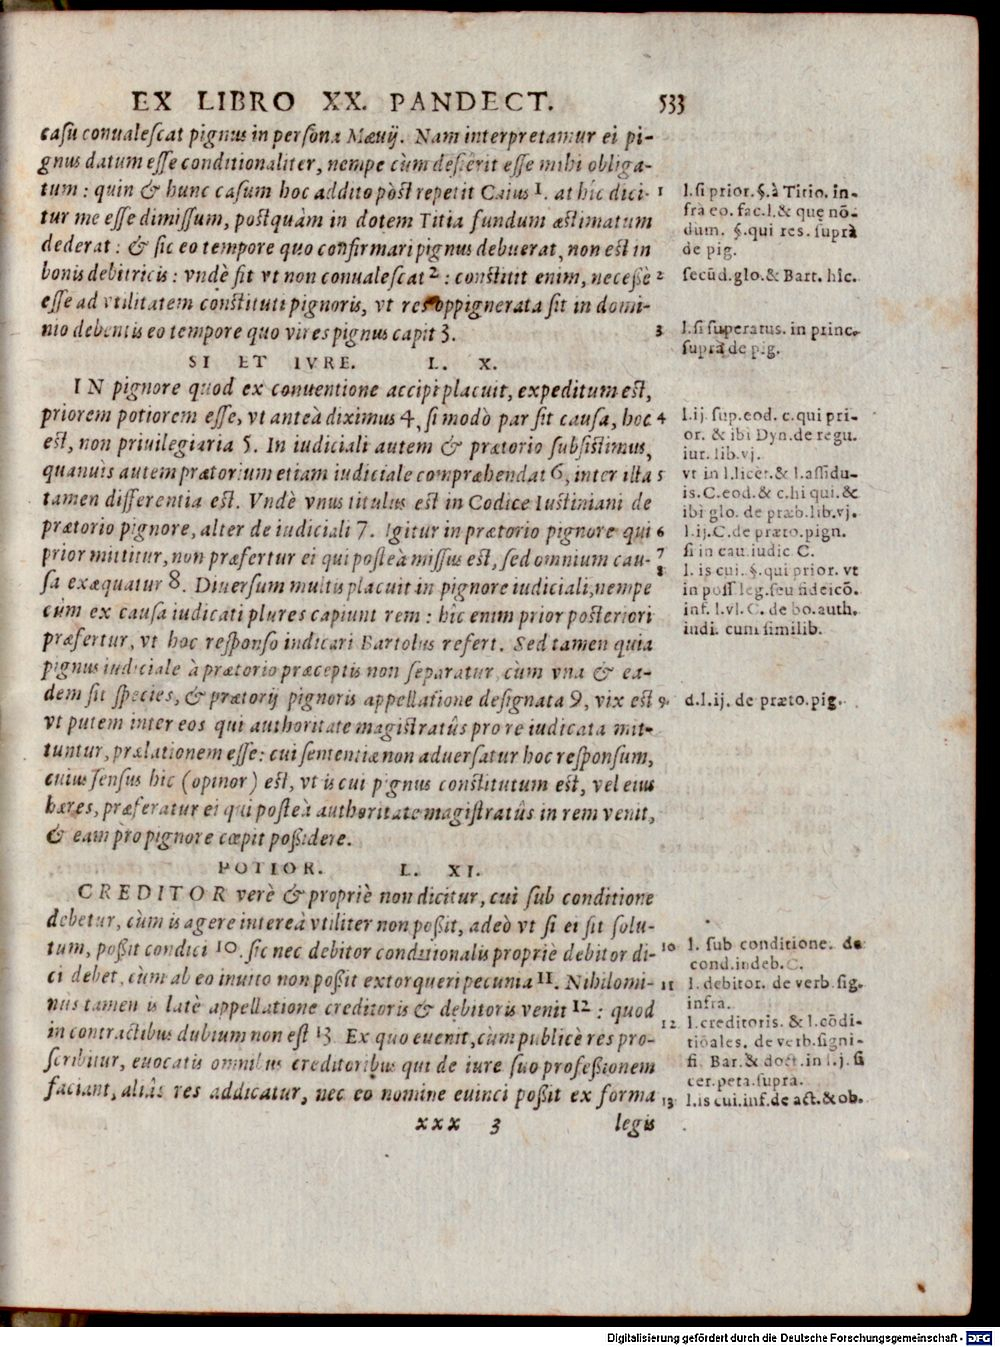 EX LIBRO XX. PANDECT. 533
casu conualescat pignus in persona Mæuij. Nam interpretamur ei pi-
gnus datum esse conditionaliter, nempe cùm desierit esse mihi obliga-
tum : quin & hunc casum hoc addito pòst repetit Caius 1. at hîc dici-
tur me esse dimissum, postquàm in dotem Titia fundum æstimatum
dederat : & sic eo tempore quo confirmari pignus debuerat, non est in
bonis debitricis : vndè fit vt non conualescat 2 : constitit enim, necessè
esse ad vtilitatem constituti pignoris, vt res oppignerata sit in domi-
nio debentis eo tempore quo vires pignus capit 3.
SI ET IVRE. L. X.
IN pignore quod ex conuentione accipi placuit, expeditum est,
priorem potiorem esse, vt anteà diximus 4, si modò par sit causa, hoc
est, non priuilegiaria 5. In iudiciali autem & prætorio subsistimus,
quanuis autem prætorium etiam iudiciale compræhendat 6, inter ista
tamen differentia est. Vndè vnus titulus est in Codice Iustiniani de
prætorio pignore, alter de iudiciali 7. Igitur in prætorio pignore qui
prior mittitur, non præfertur ei qui posteà missus est, sed omnium cau-
sa exæquatur 8. Diuersum multis placuit in pignore iudiciali, nempe
cùm ex causa iudicati plures capiunt rem : hîc enim prior posteriori
præfertur, vt hoc responso indicari Bartolus refert. Sed tamen quia
pignus iudiciale à prætorio præceptis non separatur, cùm vna & ea-
dem sit species, & prætorij pignoris appellatione designata 9, vix est
vt putem inter eos qui authoritate magistratûs pro re iudicata mit-
tuntur, prælationem esse : cui sententiæ non aduersatur hoc responsum,
cuius sensus hic (opinor) est, vt is cui pignus constitutum est, vel eius
hæres, præferatur ei qui posteà authoritate magistratûs in rem venit,
& eam pro pignore cœpit possidere.
POTIOR. L. XI.
CREDITOR verè & propriè non dicitur, cui sub conditione
debetur, cùm is agere intereà vtiliter non possit, adeò vt si ei sit solu-
tum, possit condici 10. sic nec debitor conditionalis propriè debitor di-
ci debet, cùm ab eo inuito non possit extorqueri pecunia 11. Nihilomi-
nus tamen is latè appellatione creditoris & debitoris venit 12 : quod
in contractibus dubium non est 13. Ex quo euenit, cùm publicè res pro-
scribitur, euocatis omnibus creditoribus qui de iure suo professionem
faciant, aliâs res addicatur, nec eo nomine euinci possit ex forma
xxx 3 legis
1 l.si prior. §.à Titio. in-
frà eo. fac.l.& quę nō-
dum. §.qui res. suprà
de pig.
2 secūd.glo.& Bart. hîc.
3 l.si superatus. in princ.
suprà de pig.
4 l.ij. sup.eod. c.qui pri-
or. & ibi Dyn.de regu.
iur. lib.vj.
5 vt in l.licet.& l.assidu-
is.C.eod.& c.hi qui.&
ibi glo. de præb.lib.vj.
6 l.ij.C.de præto.pign.
7 si in cau.iudic C.
8 l. is cui. §.qui prior. vt
in poss leg.seu fideicō.
inf. l.vl. C. de bo.auth.
iudi. cum similib.
9 d.l.ij. de præto.pig.
10 l. sub conditione. de
cond.indeb.C.
11 l. debitor. de verb sig.
infra.
12 l.creditoris. & l.cōdi-
tiōales. de verb.signi-
fi. Bar.& doct.in l.j. si
cer.peta.supra.
13 l.is cui.inf.de act.& ob.
Digitalisierung gefördert durch die Deutsche Forschungsgemeinschaft - DFG